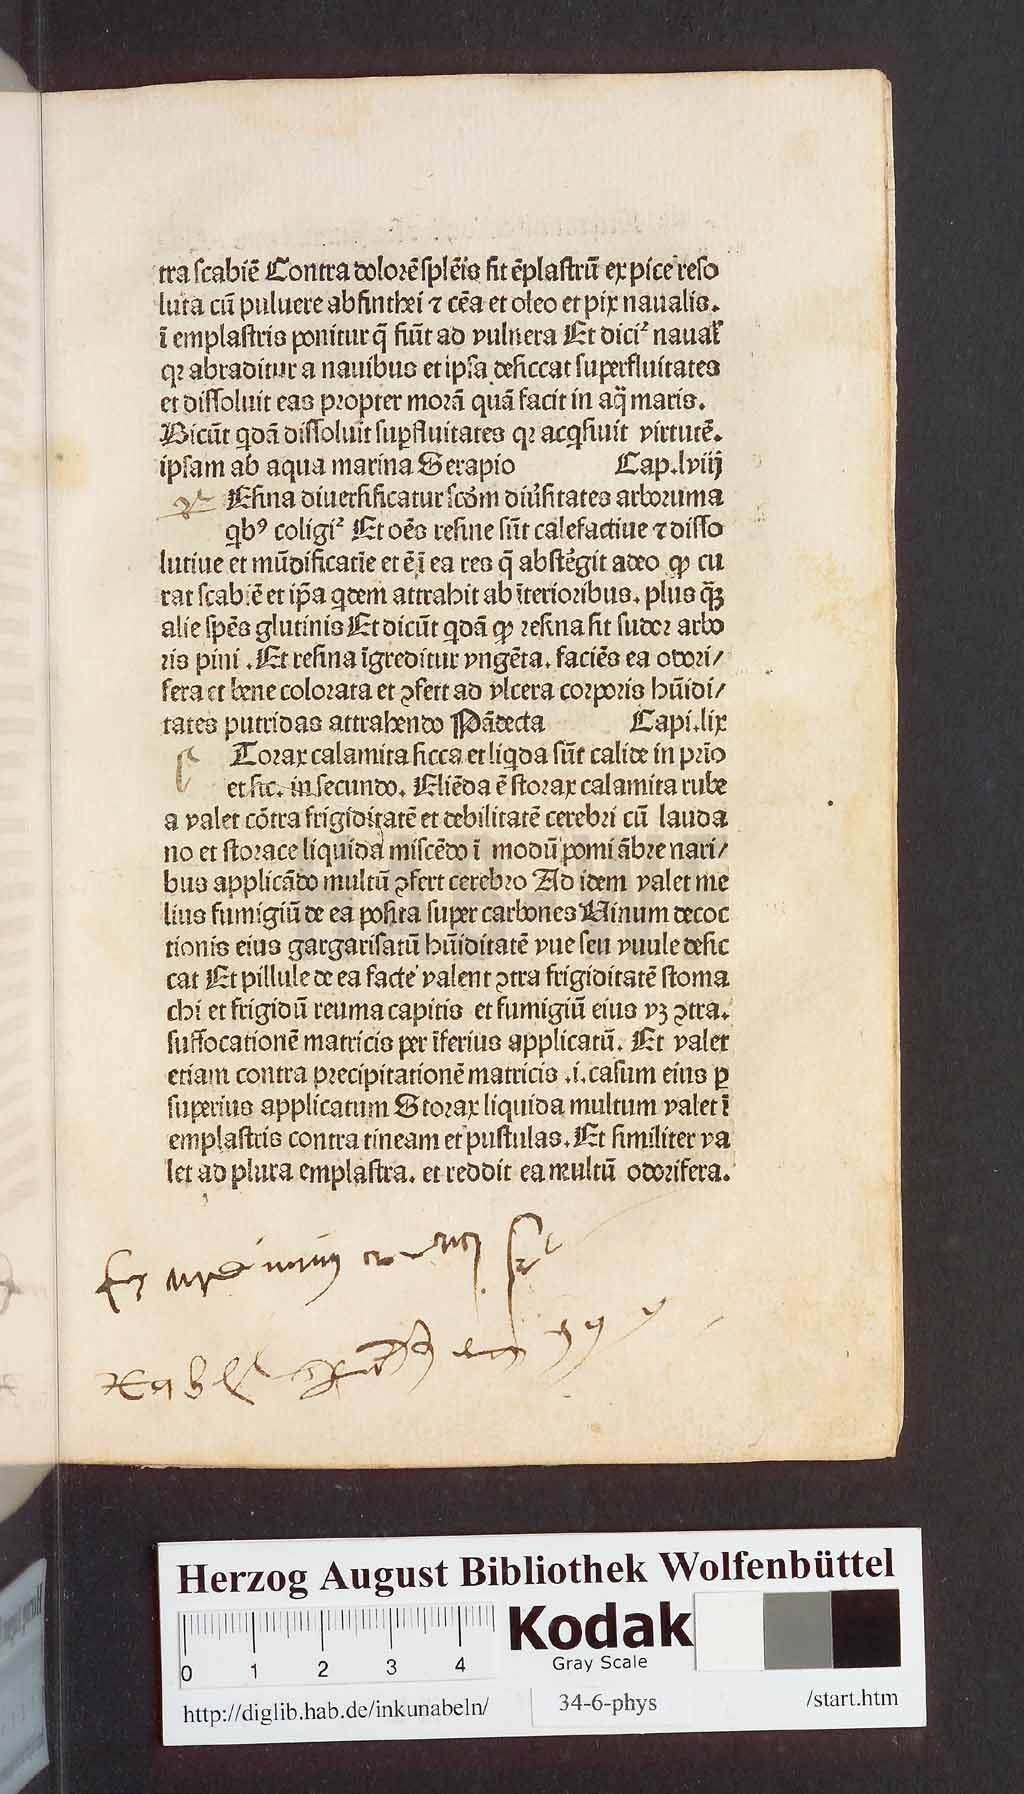 tra scabiē Contra dolorē splēis fit ēplastrū ex pice reso
luta cū puluere absinthei ⁊ cēa et oleo et pix naualis.
ī emplastris ponitur q̄ fiūt ad vulnera Et diciꝰ naual̕
qꝛ abraditur a nauibus et ipsa desiccat superfluitates
et dissoluit eas propter morā quā facit in aq̄ maris.
Dicūt qdā dissoluit suꝑfluitates qꝛ acqsiuit virtutē.
ipsam ab aqua marina Serapio Cap.lviij
Esina diuersificatur scḋm diūsitates arboruma
qbꝰ coligiꝰ Et oēs resine sūt calefactiue ⁊ disso
lutiue et mūdificatīe et ē ī ea res q̄ abstērgit adeo ꝙ cu
rat scabiē et ip̄a qdem attrahit ab īterioribus. plus q̄ꝫ
alie spēs glutinis Et dicūt qdā ꝙ resina fit sudor arbo
ris pini . Et resina īgreditur vngēta. faciēs ea odori/
fera et bene colorata et ꝯfert ad vlcera corporis hūidi/
tates putridas attrahendo Pādecta Capi.lix
Torax calamita sicca et liqda sūt calide in prīo
et sic. in secundo. Eliēda ē storax calamita rube
a valet cōtra frigiditatē et debilitatē cerebri cū lauda
no et storace liquida miscēdo ī modū pomi ābre nari/
bus applicādo multū ꝯfert cerebro Ad idem valet me
lius fumigiū de ea posita super carbones Vinum decoc
tionis eius gargarisatū hūiditatē vue seu vuule desic
cat Et pillule de ea facte valent ꝯtra frigiditatē stoma
chi et frigidū reuma capitis et fumigiū eius vꝫ ꝯtra.
suffocationē matricis per īferius applicatū. Et valet
etiam contra precipitationē matricis .i. casum eius ꝑ
superius applicatum Storax liquida multum valet ī
emplastris contra tineam et pustulas. Et similiter va
let ad plura emplastra. et reddit ea multū odorifera.
Herzog August Bibliothek Wolfenbüttel
Kodak
Gray Scale
0 1 2 3 4
http://diglib.hab.de/inkunabeln/ 34-6-phys /start.htm